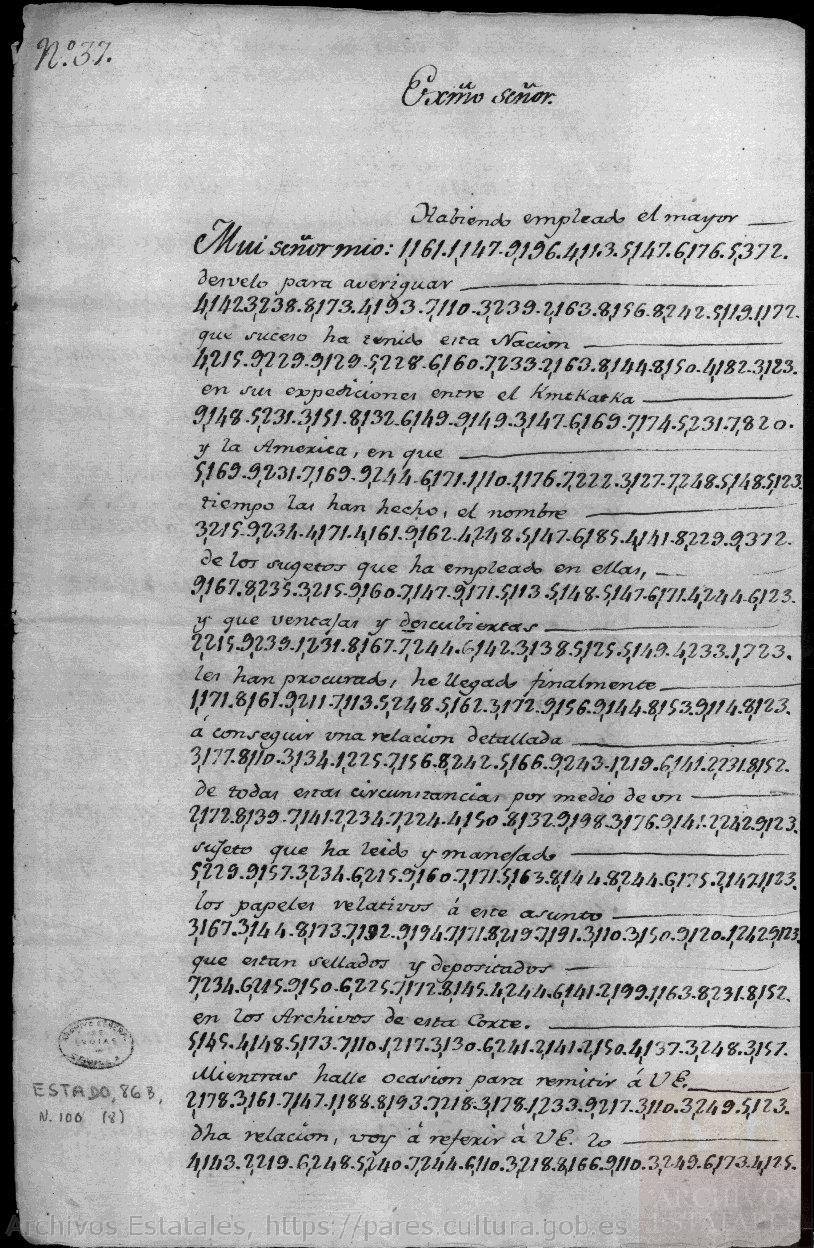 N.º 37.
Exmõ señor.
Habiendo empleado el mayor
Mui señor mio: 1161.1147.9196.4113.5147.6176.5372.
desvelo para averiguar
4142.3238.8173.4193.7110.3239.2163.8156.8242.5119.1172.
que suceso ha tenido esta Nacion
4215.9229.9129.5228.6160.7233.2163.8144.8150.4182.3123.
en sus expediciones entre el Kmtkatka
9148.5231.3151.8132.6149.9149.3147.6169.7174.5231.7820.
y la America, en que
5169.9231.7169.9244.6171.1110.1176.7222.3127.7248.5148.5123.
tiempo las han hecho, el nombre
3215.9234.4171.4161.9162.4248.5147.6185.4141.8229.9372.
de los sugetos que ha empleado en ellas,
9167.8235.3215.9160.7147.9171.5113.5148.5147.6171.4244.6123.
y que ventajas y descubiertas
2215.9239.1231.8167.7244.6142.3138.5125.5149.4233.1723.
les han procurado, he llegado finalmente
1171.8161.9211.7113.5248.5162.3172.9156.9144.8153.9114.8123.
á conseguir una relacion detallada
3177.8110.3134.1225.7156.8242.5166.9243.1219.6141.2231.8152.
de todas estas circunstancias por medio de un
2172.8139.7141.2234.7224.4150.8132.9198.3176.9141.2242.9123.
sujeto que ha leido y manejado
5229.9157.3234.6215.9160.7171.5163.8144.8244.6175.2147.1123.
los papeles relativos á este asunto
3167.3144.8173.7192.9194.7171.8219.7191.3110.3150.9120.1242.9123.
que estan sellados y depositados
7234.6215.9150.6225.7172.8145.4244.6141.2199.1163.8231.8152.
en los Archivos de esta Corte.
5145.4148.5173.7110.1217.3130.6241.2141.2150.4137.3248.3157.
Mientras halle ocasion para remitir á VE.
2178.3161.7147.1188.8193.7218.3178.1233.9217.3110.3249.5123.
dha relacion, voy á referir á VE. lo
4143.2219.6248.5240.7244.6110.3218.8166.9110.3249.6173.4125.
ESTADO, 86B,
N. 100 (8)
Archivos Estatales, https://pares.cultura.gob.es
ARCHIVOS
ESTATALES